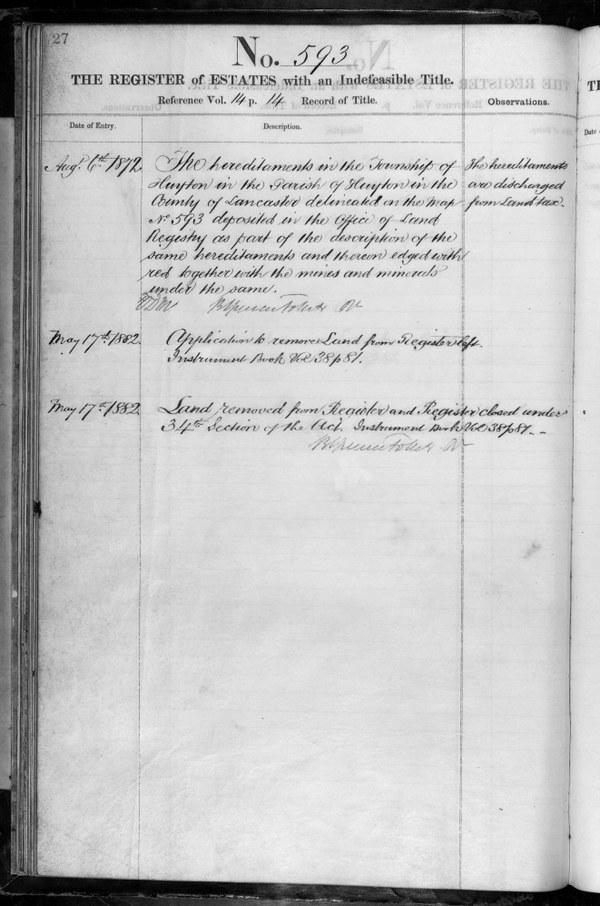 27
No. 593
THE REGISTER of ESTATES with an Indefeasible Title.
Reference Vol. 14 p. 14 Record of Title.
Observations.
Date of Entry.
Description.
Augt. 6th 1872
The hereditaments in the Township of
Huyton in the Parish of Huyton in the
County of Lancaster delineated on the Map
No 593 deposited in the Office of Land
Registry as part of the description of the
same hereditaments and thereon edged with
red together with the mines and minerals
under the same.
The hereditaments
are discharged
from Land tax.
May 17th 1882.
Application to remove Land from Register left.
Instrument Book Vol 38 p 81.
May 17th 1882.
Land removed from Register and Register closed under
34th Section of the Act. Instrument Book Vol 38 p 81. -